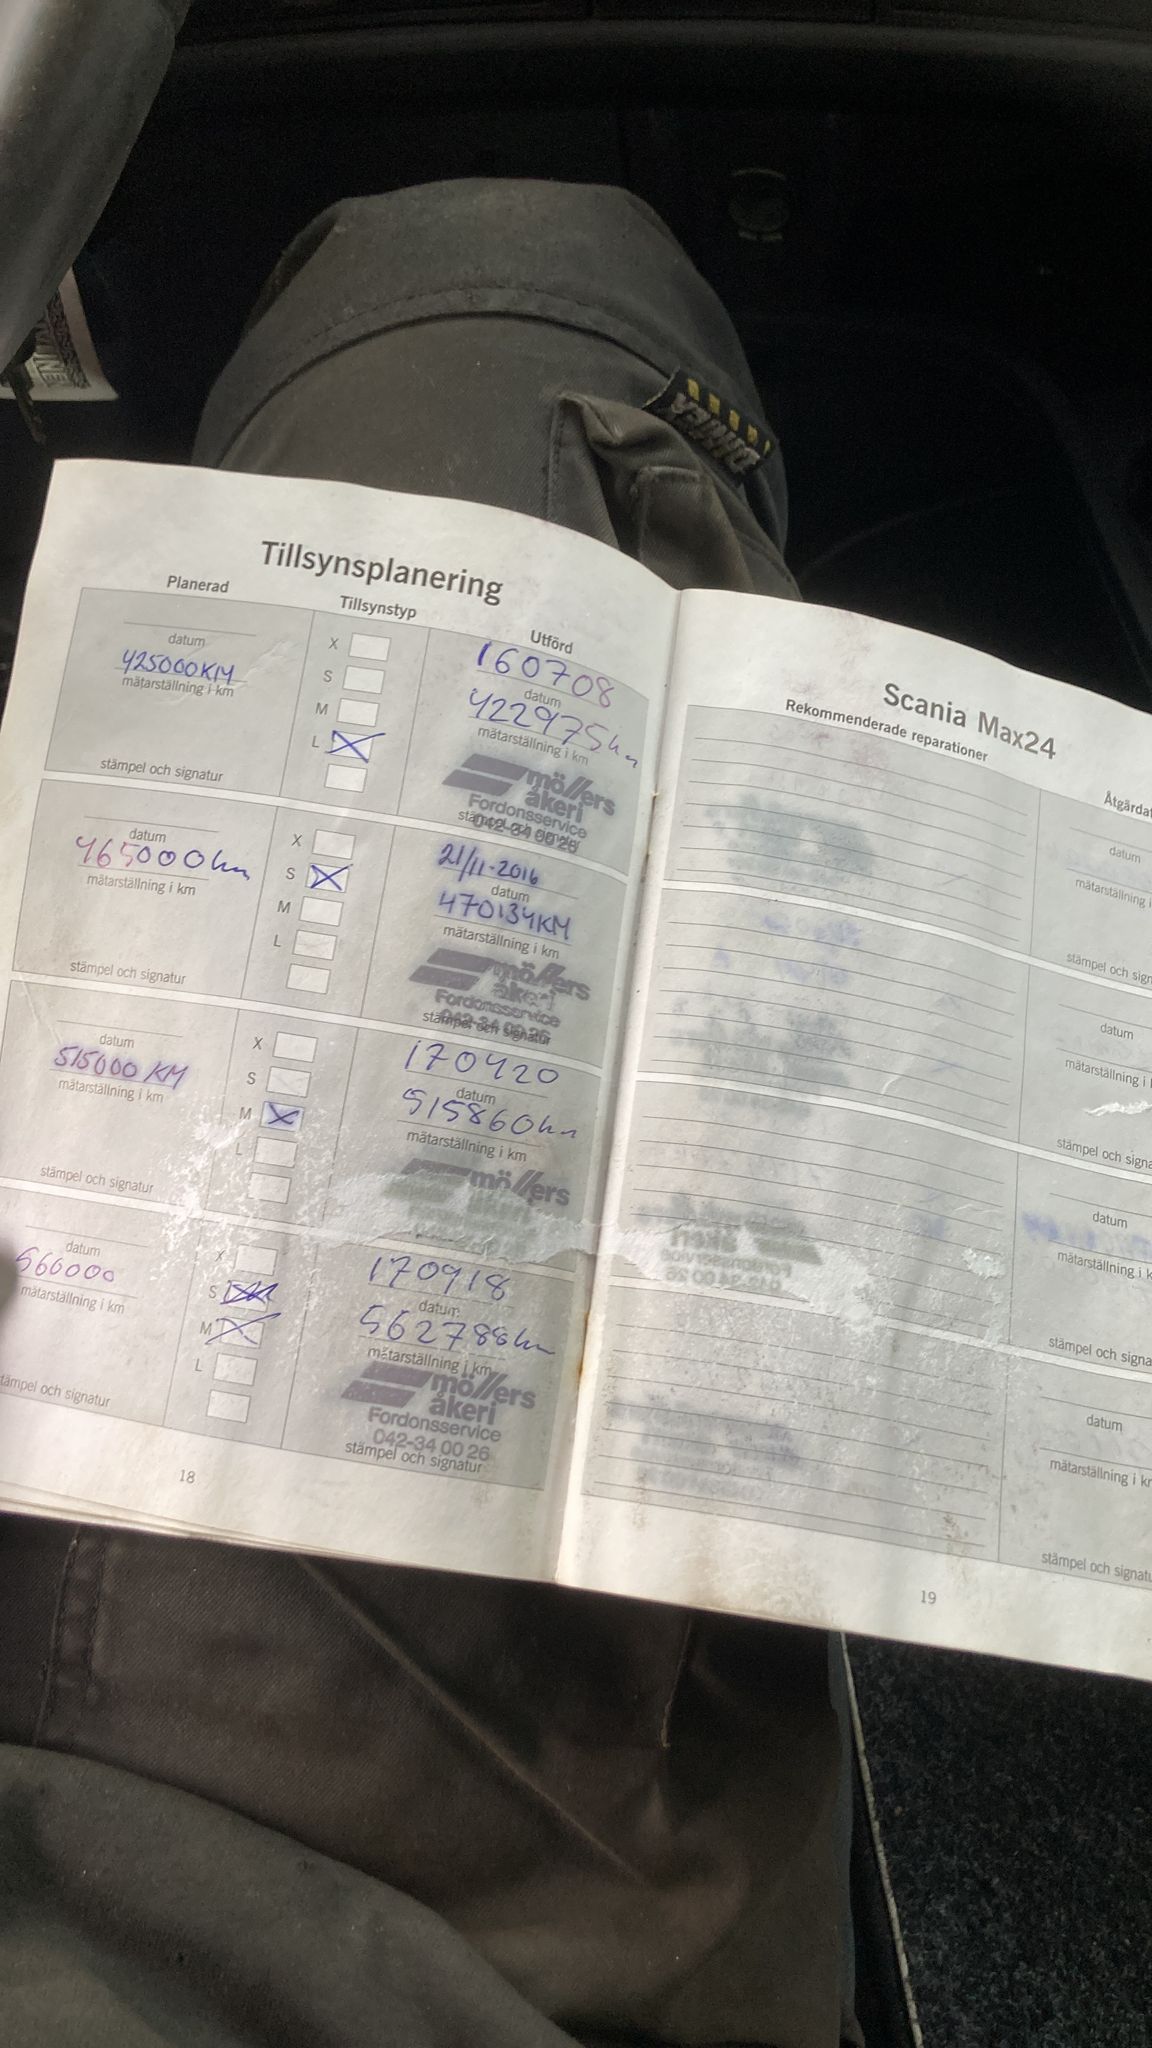 Tillsynsplanering
Planerad Tillsynstyp Utförd
datum
425000KM
mätarställning i km
stämpel och signatur
X
S
M
L
160708
datum
422975km
mätarställning i km
möllers
åkeri
Fordonsservice
stämpel och signatur
042-34 00 26
datum
465000km
mätarställning i km
stämpel och signatur
X
S
M
L
21/11-2016
datum
470134KM
mätarställning i km
möllers
åkeri
Fordonsservice
stämpel och signatur
042-34 00 26
datum
515000 KM
mätarställning i km
stämpel och signatur
X
S
M
L
170420
datum
515860km
mätarställning i km
möllers
datum
560000
mätarställning i km
stämpel och signatur
X
S
M
L
170918
datum
562788km
mätarställning i km
möllers
åkeri
Fordonsservice
042-34 00 26
stämpel och signatur
18
Scania Max24
Rekommenderade reparationer
Åtgärdat
datum
mätarställning i
stämpel och sign
datum
mätarställning i
stämpel och signa
datum
mätarställning i k
stämpel och signa
datum
mätarställning i kr
stämpel och signatu
19